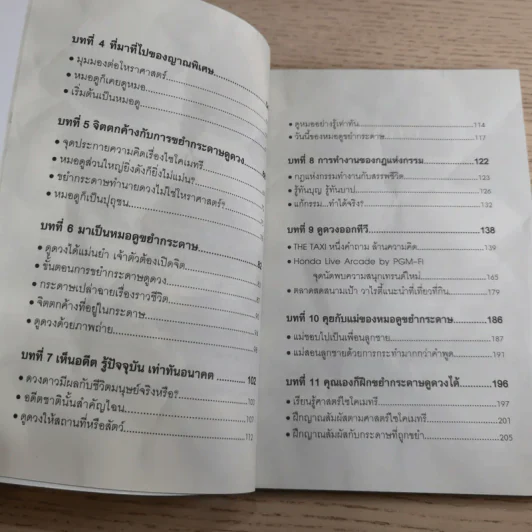 บทที่ 4 ที่มาที่ไปของญาณพิเศษ
• มุมมองต่อโหราศาสตร์
• หมอดูก็เคยดูหมอ
• เริ่มต้นเป็นหมอดู
บทที่ 5 จิตตกค้างกับการขยำกระดาษดูดวง
• จุดประกายความคิดเรื่องไซโคเมทรี
• หมอดูส่วนใหญ่ยิ่งดังก็ยิ่งไม่แม่น?
• ขยำกระดาษทำนายดวงไม่ใช่โหราศาสตร์?
• หมอดูก็เป็นปุถุชน
บทที่ 6 มาเป็นหมอดูขยำกระดาษ
• ดูดวงได้แม่นยำ เจ้าตัวต้องเปิดจิต
• ขั้นตอนการขยำกระดาษดูดวง
• กระดาษเปล่าฉายเรื่องราวชีวิต
• จิตตกค้างที่อยู่ในกระดาษ
• ดูดวงด้วยภาพถ่าย
บทที่ 7 เห็นอดีต รู้ปัจจุบัน เท่าทันอนาคต 102
• ดวงดาวมีผลกับชีวิตมนุษย์จริงหรือ?
• อดีตชาตินั้นสำคัญไฉน 107
• ดูดวงให้สถานที่หรือสัตว์ 112
• ดูหมออย่างรู้เท่าทัน 114
• วันนี้ของหมอดูขยำกระดาษ 117
บทที่ 8 การทำงานของกฎแห่งกรรม 122
• กฎแห่งกรรมทำงานกับสรรพชีวิต 123
• รู้ทันบุญ รู้ทันบาป 126
• แก้กรรม...ทำได้จริง? 132
บทที่ 9 ดูดวงออกทีวี 138
• THE TAXI หนึ่งคำถาม ล้านความคิด 139
• Honda Live Arcade by PGM-Fi
จุดนัดพบความสนุกเทรนด์ใหม่ 165
• ตลาดสดสนามเป้า วาไรตี้แนะนำที่เที่ยวที่กิน 179
บทที่ 10 คุยกับแม่ของหมอดูขยำกระดาษ 186
• แม่ชอบไปเป็นเพื่อนลูกชาย 187
• แม่สอนลูกชายด้วยการกระทำมากกว่าคำพูด 191
บทที่ 11 คุณเองก็ฝึกขยำกระดาษดูดวงได้ 196
• เรียนรู้ศาสตร์ไซโคเมทรี 197
• ฝึกญาณสัมผัสตามศาสตร์ไซโคเมทรี 201
• ฝึกญาณสัมผัสกับกระดาษที่ถูกขยำ 205